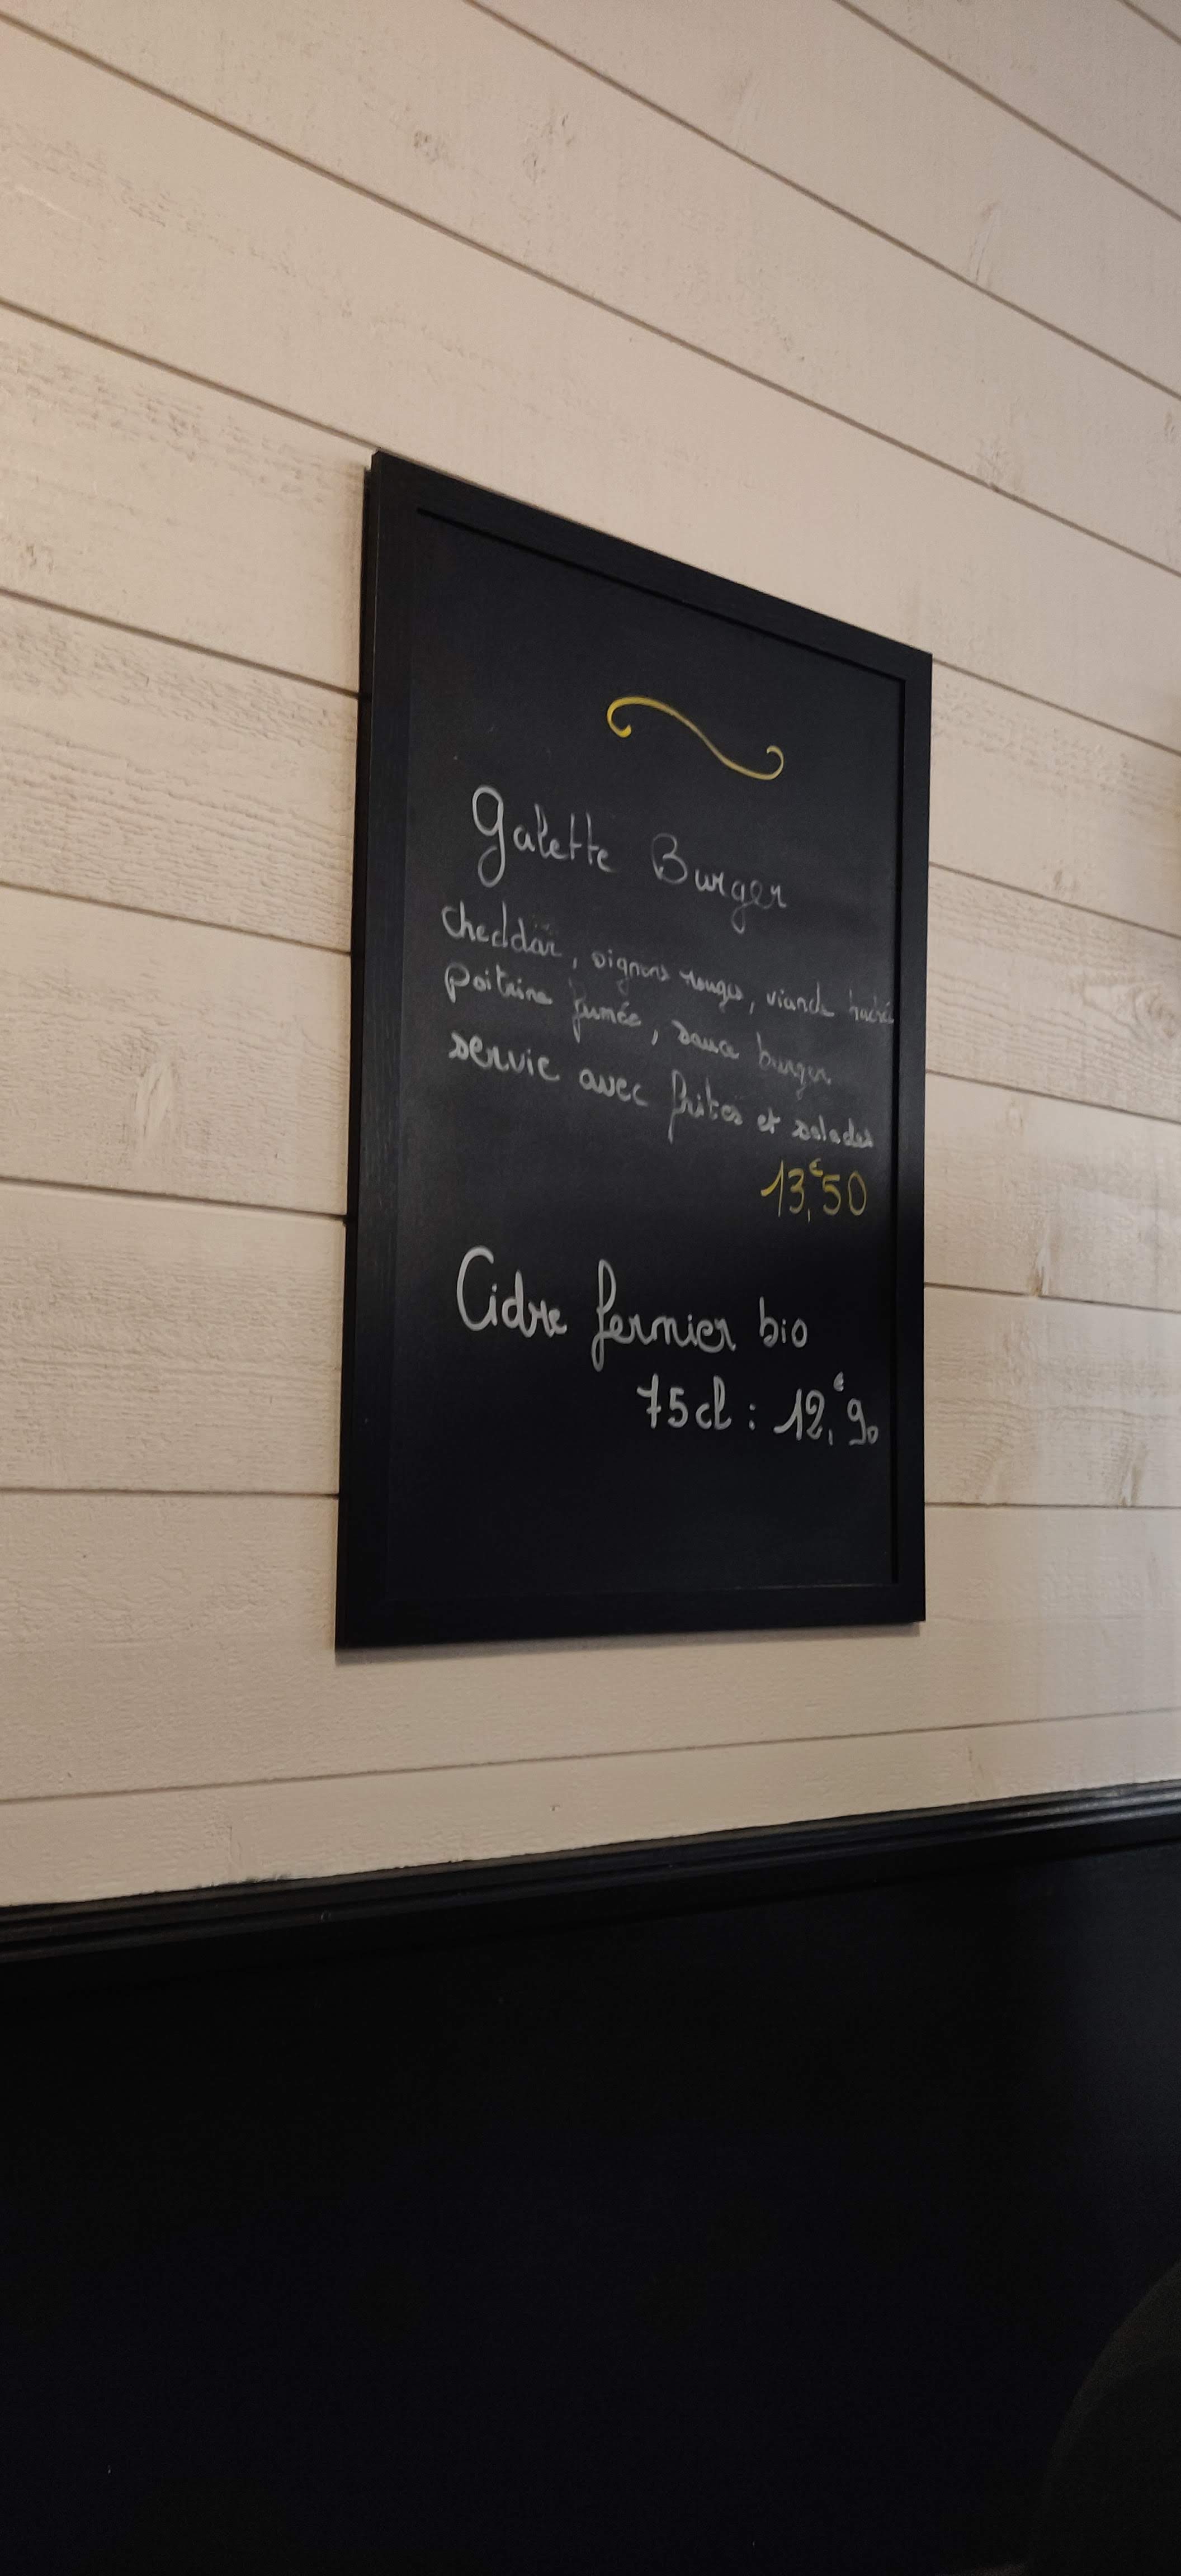 Galette Burger
cheddar, oignons rouges, viande hachée
poitrine fumée, sauce burger
servie avec frites et salades
13,€50
Cidre fermier bio
75cl : 12,€90